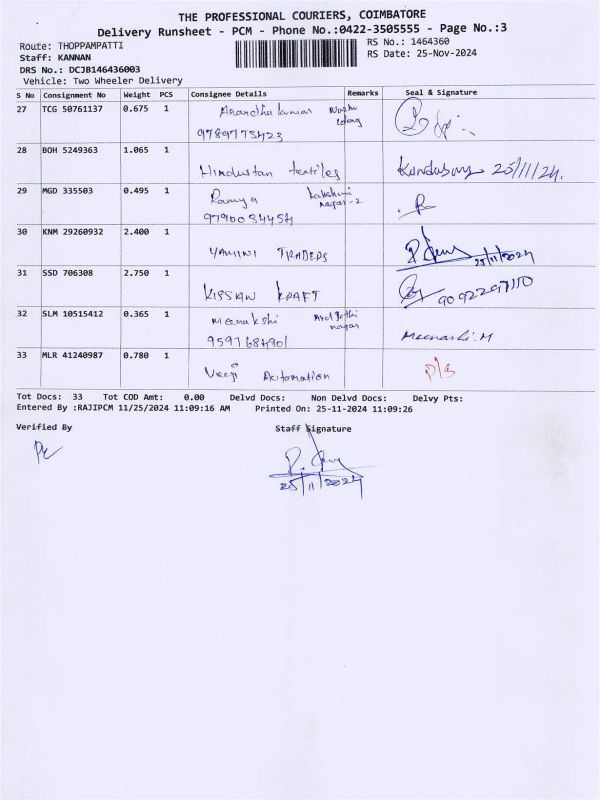 THE PROFESSIONAL COURIERS, COIMBATORE
Delivery Runsheet - PCM - Phone No.:0422-3505555 - Page No.:3
Route: THOPPAMPATTI
RS No.: 1464360
Staff: KANNAN
RS Date: 25-Nov-2024
DRS No.: DCJB146436003
Vehicle: Two Wheeler Delivery
S No Consignment No Weight PCS Consignee Details Remarks Seal & Signature
27 TCG 50761137 0.675 1 Anandha kumar
9789775423
28 BOH 5249363 1.065 1
Hindustan textiles 25/11/24.
29 MGD 335503 0.495 1 Ramya Lakshmi
nagar-2
9790034454
30 KNM 29260932 2.400 1
YAMINI TRADERS 25/11/2024
31 SSD 706308 2.750 1
KISSAN KRAFT 9092297110
32 SLM 10515412 0.365 1 Meenakshi
nagar
9597684901 Meenakshi.M
33 MLR 41240987 0.780 1
Veeji Automation P/S
Tot Docs: 33 Tot COD Amt: 0.00 Delvd Docs: Non Delvd Docs: Delvy Pts:
Entered By :RAJIPCM 11/25/2024 11:09:16 AM Printed On: 25-11-2024 11:09:26
Verified By Staff Signature
25/11/2024